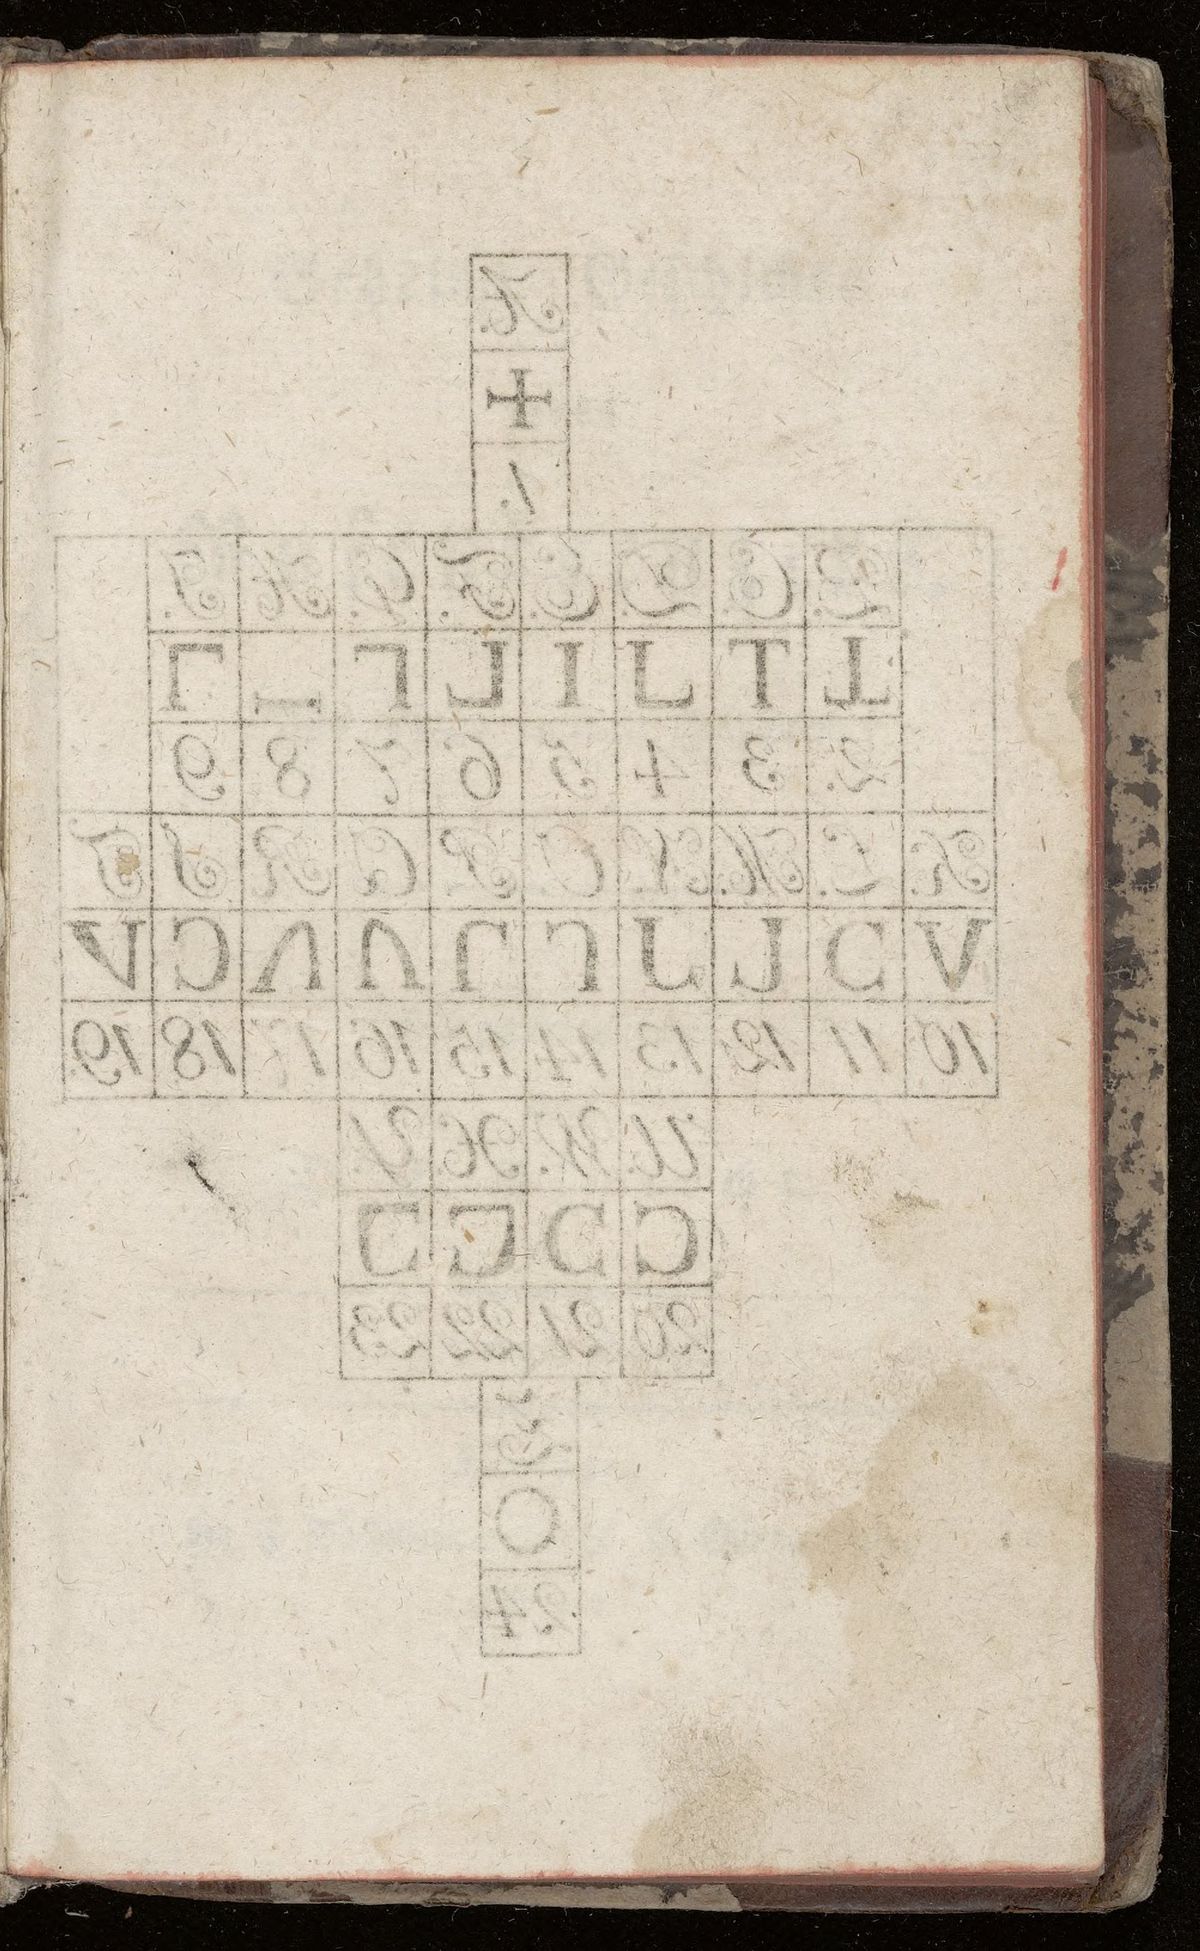 A.
+
1.
B. C. D. E. F. G. H. I.
2. 3 4 5 6 7 8 9
K. L. M. N. O P. Q R S. T.
10 11 12 13 14 15 16 17 18 19
U. W. X Y.
20 21 22 23
Z
O
24